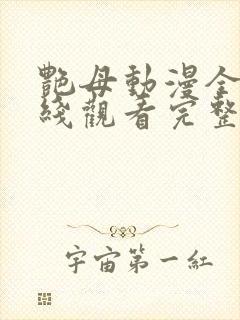 艷母動漫全
綫觀看完整
宇宙第一紅